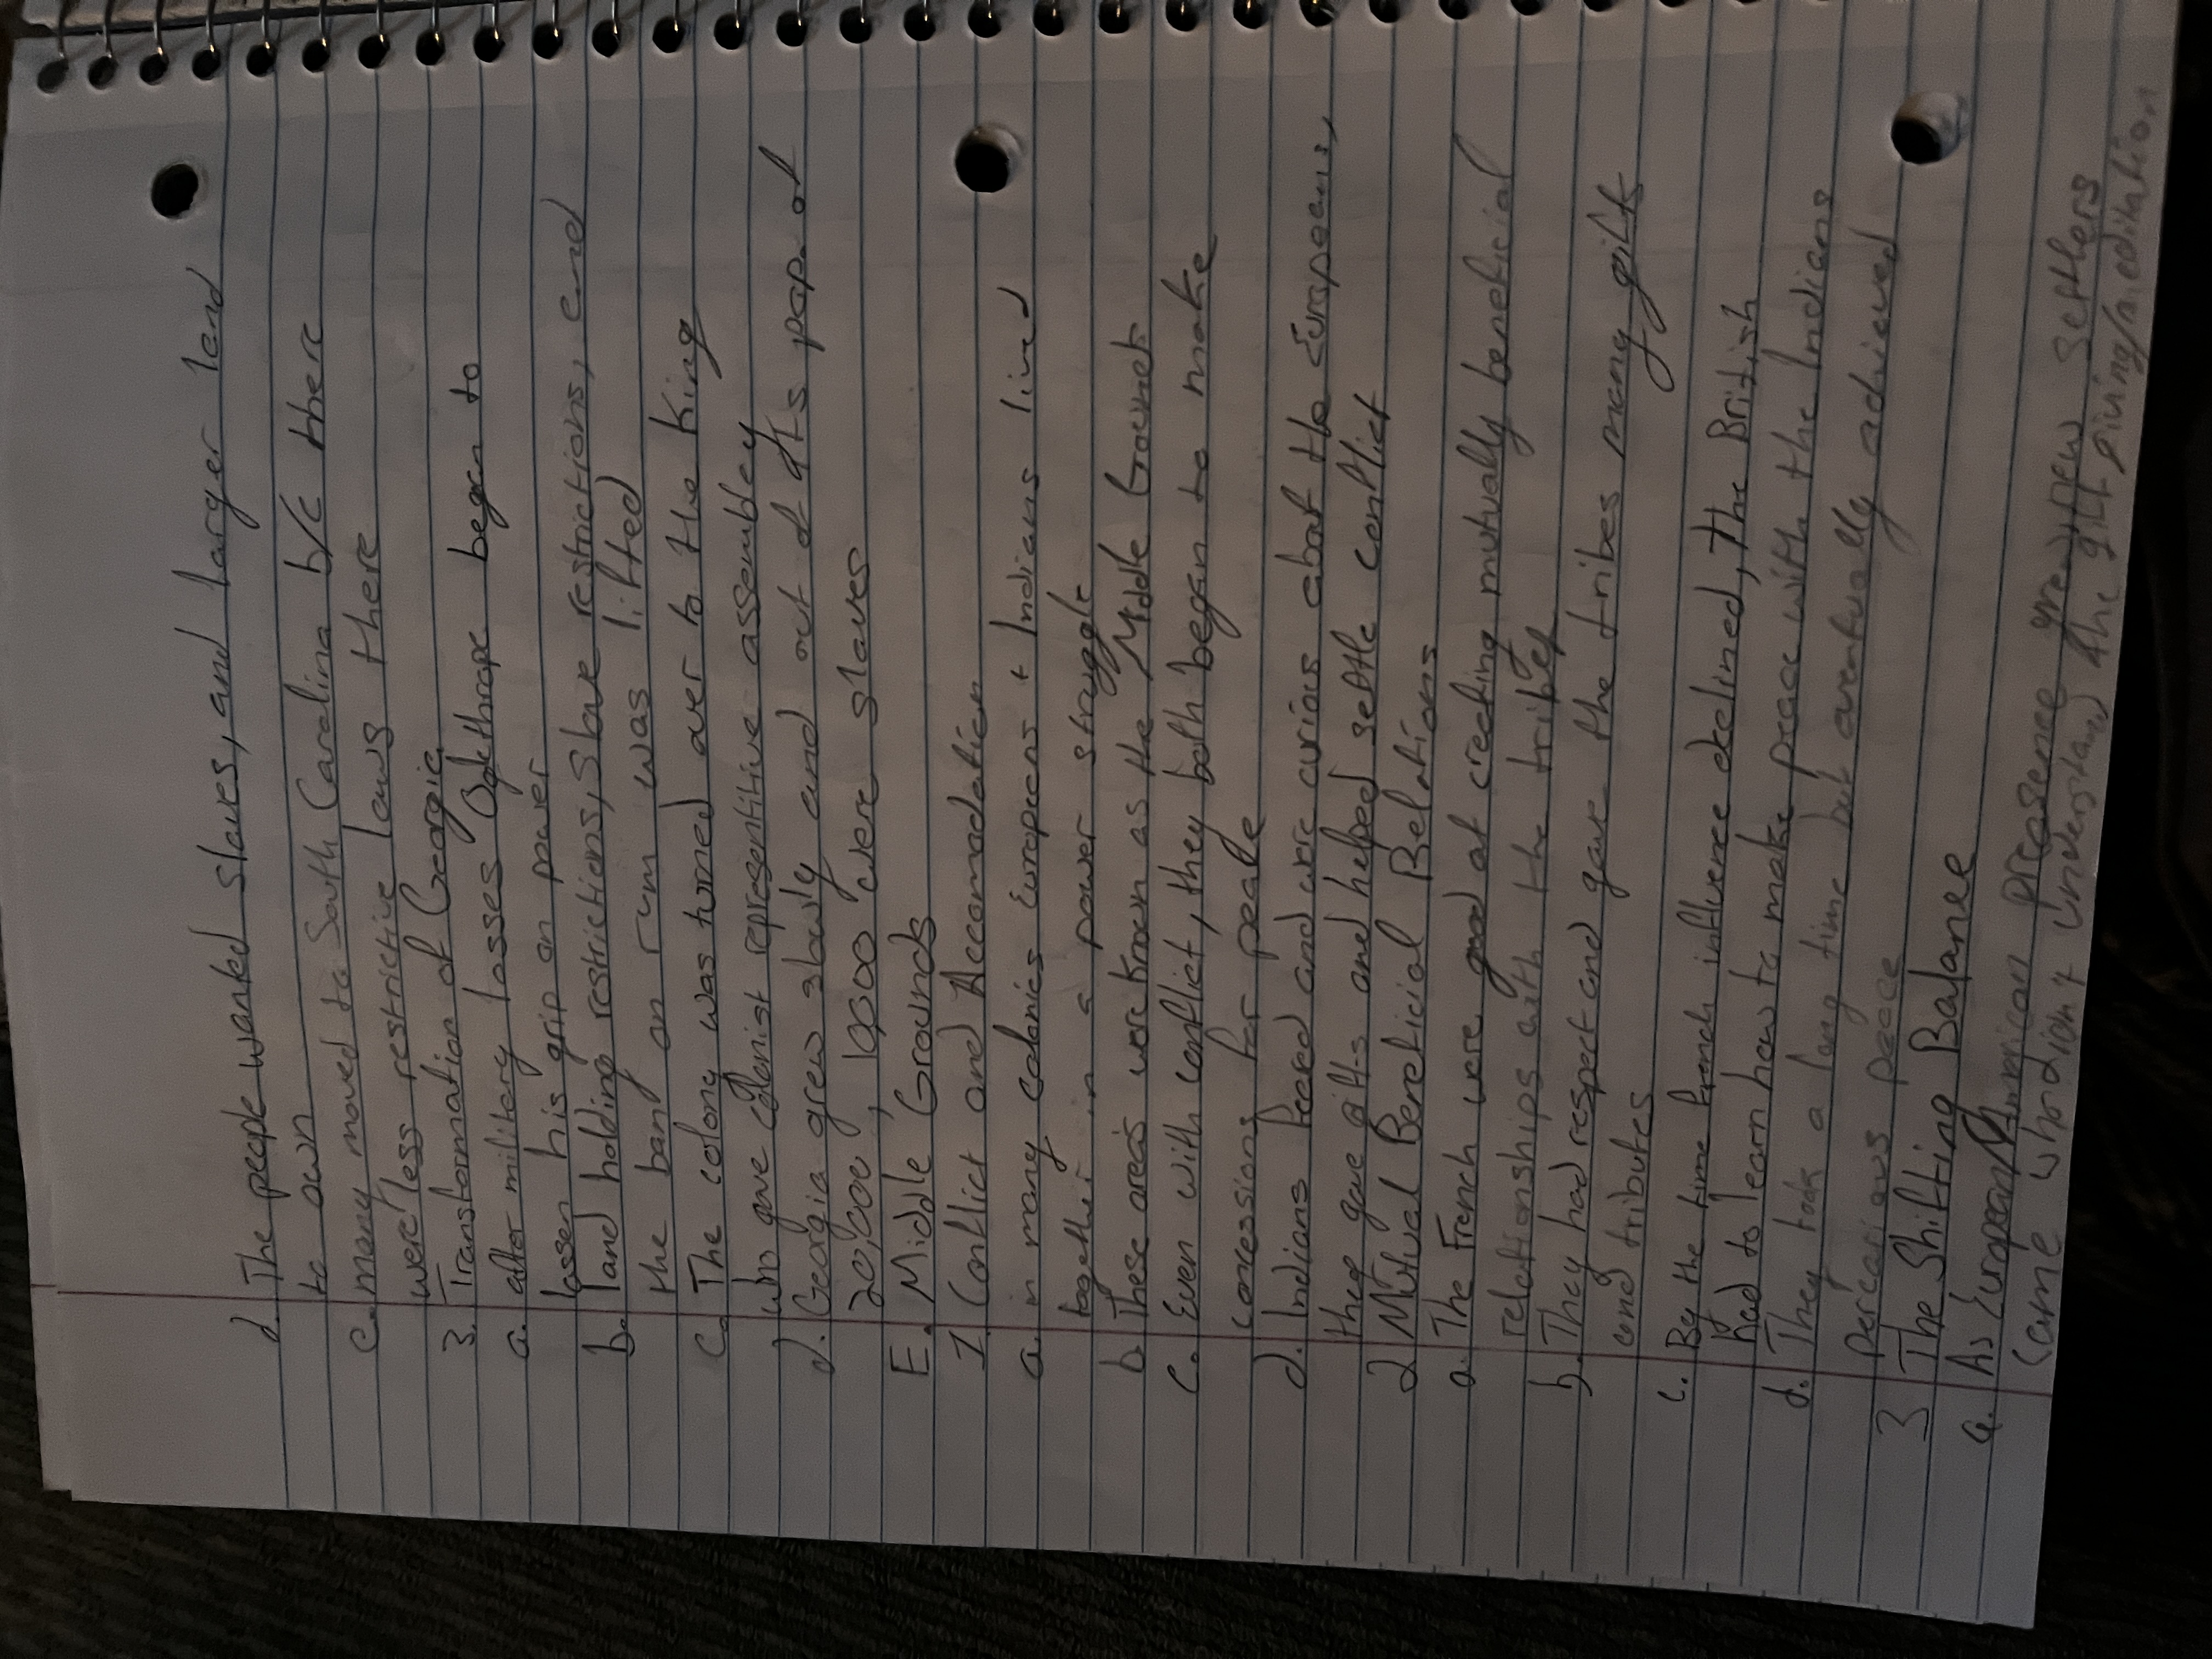 d. The people wanted slaves, and larger land
to own
e. many moved to South Carolina b/c there
were less restrictive laws there
3. Transformation of Georgia
a. after military losses Oglethrope began to
lossen his grip on power
b. land holding restrictions, slave restrictions, and
the ban on rum was lifted
c. The colony was turned over to the King
who gave colonist representitive assembley
d. Georgia grew slowly and out of its pop. of
20,000, 10,000 were slaves
E. Middle Grounds
1. Conflict and Accomodation
a. in many colonies Europeans + Indians lived
together in a power struggle
b. These areas were known as the Middle Grounds
c. Even with conflict, they both began to make
concessions for peace
d. Indians feared and were curious about the Europeans,
they gave gifts and helped settle conflict
2 Mutual Benificial Relations
a. The French were good at creating mutually beneficial
relationships with the tribes
b. They had respect and gave the tribes many gifts
and tributes
c. By the time french influence declined, the British
had to learn how to make peace with the Indians
d. They took a long time but eventually achieved
percarious peace
3 The Shifting Balance
a. As European/American preasence grew, new settlers
came who didn't understand the gift giving/meditation